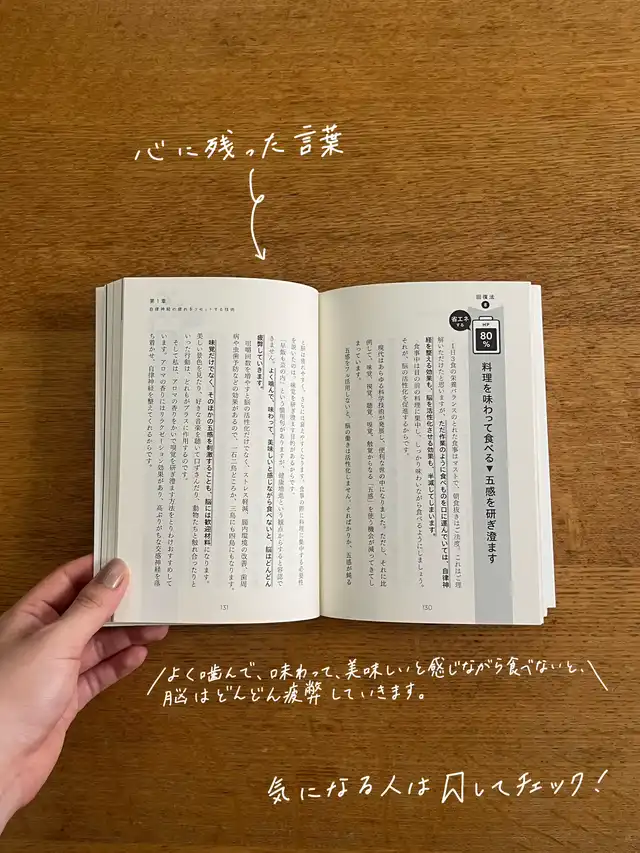 心に残った言葉
回復法
8
省エネ
する
HP
80
%
料理を味わって食べる▼五感を研ぎ澄ます
1日3食の栄養バランスのとれた食事はマストで、朝食抜きはご法度。これはご理
解いただけたと思いますが、ただ作業のように食べものを口に運んでいては、自律神
経を整える効果も、脳を活性化させる効果も、半減してしまいます。
食事中は目の前の料理に集中し、しっかり味わいながら食べるようにしましょう。
それが、脳の活性化を促進するからです。
現代はあらゆる科学技術が発展し、便利な世の中になりました。ただし、それに比
例して、味覚、嗅覚、聴覚、視覚、触覚からなる「五感」を使う機会が減ってきてし
まっています。
五感をフル活用しないと、脳の働きは活性化しません。そればかりか、五感が鈍る
130
第1章
自律神経の疲れをリセットする技術
と脳は疲れやすく、さらには衰えやすくなります。食事の際に料理に集中する必要性
を説いたのは、味覚を研ぎ澄ます目的があるからです。
「早飯も芸の内」という慣用句がありますが、健康増進という観点からすると容認で
きません。よく噛んで、味わって、美味しいと感じながら食べないと、脳はどんどん
疲弊していきます。
咀嚼回数を増やすと脳の活性化だけでなく、ストレス軽減、腸内環境の改善、歯周
病や虫歯予防などの効果があるので、一石二鳥どころか、三鳥にも四鳥にもなります。
味覚だけでなく、そのほかの五感を刺激することも、脳には歓迎材料になります。
美しい景色を見たり、好きな音楽を聴いて口ずさんだり、動物たちと触れ合ったりと
いった行動は、どれもがプラスに作用するのです。
そして私は、アロマの香りをかいで嗅覚を研ぎ澄ます方法をとりわけおすすめして
います。アロマの香りにはリラクゼーション効果があり、高ぶりがちな交感神経を落
ち着かせ、自律神経を整えてくれるからです。
131
よく噛んで、味わって、美味しいと感じながら食べないと、
脳はどんどん疲弊していきます。
気になる人は𠮷してチェック!